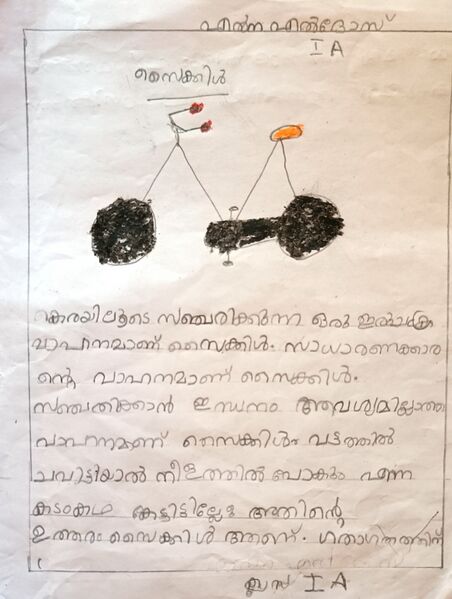 എൽന എൽദോസ്
I A
സൈക്കിൾ
കരയിലൂടെ സഞ്ചരിക്കുന്ന ഒരു ഇരുചക്ര
വാഹനമാണ് സൈക്കിൾ. സാധാരണക്കാര
ന്റെ വാഹനമാണ് സൈക്കിൾ.
സഞ്ചരിക്കാൻ ഇന്ധനം ആവശ്യമില്ലാത്ത
വാഹനമാണ് സൈക്കിൾ. വട്ടത്തിൽ
ചവിട്ടിയാൽ നീളത്തിൽ ഓടും എന്ന
കടംകഥ കേട്ടിട്ടില്ലേ അതിന്റെ
ഉത്തരം സൈക്കിൾ ആണ്. ഗതാഗതത്തിന്
ക്ലാസ് I A